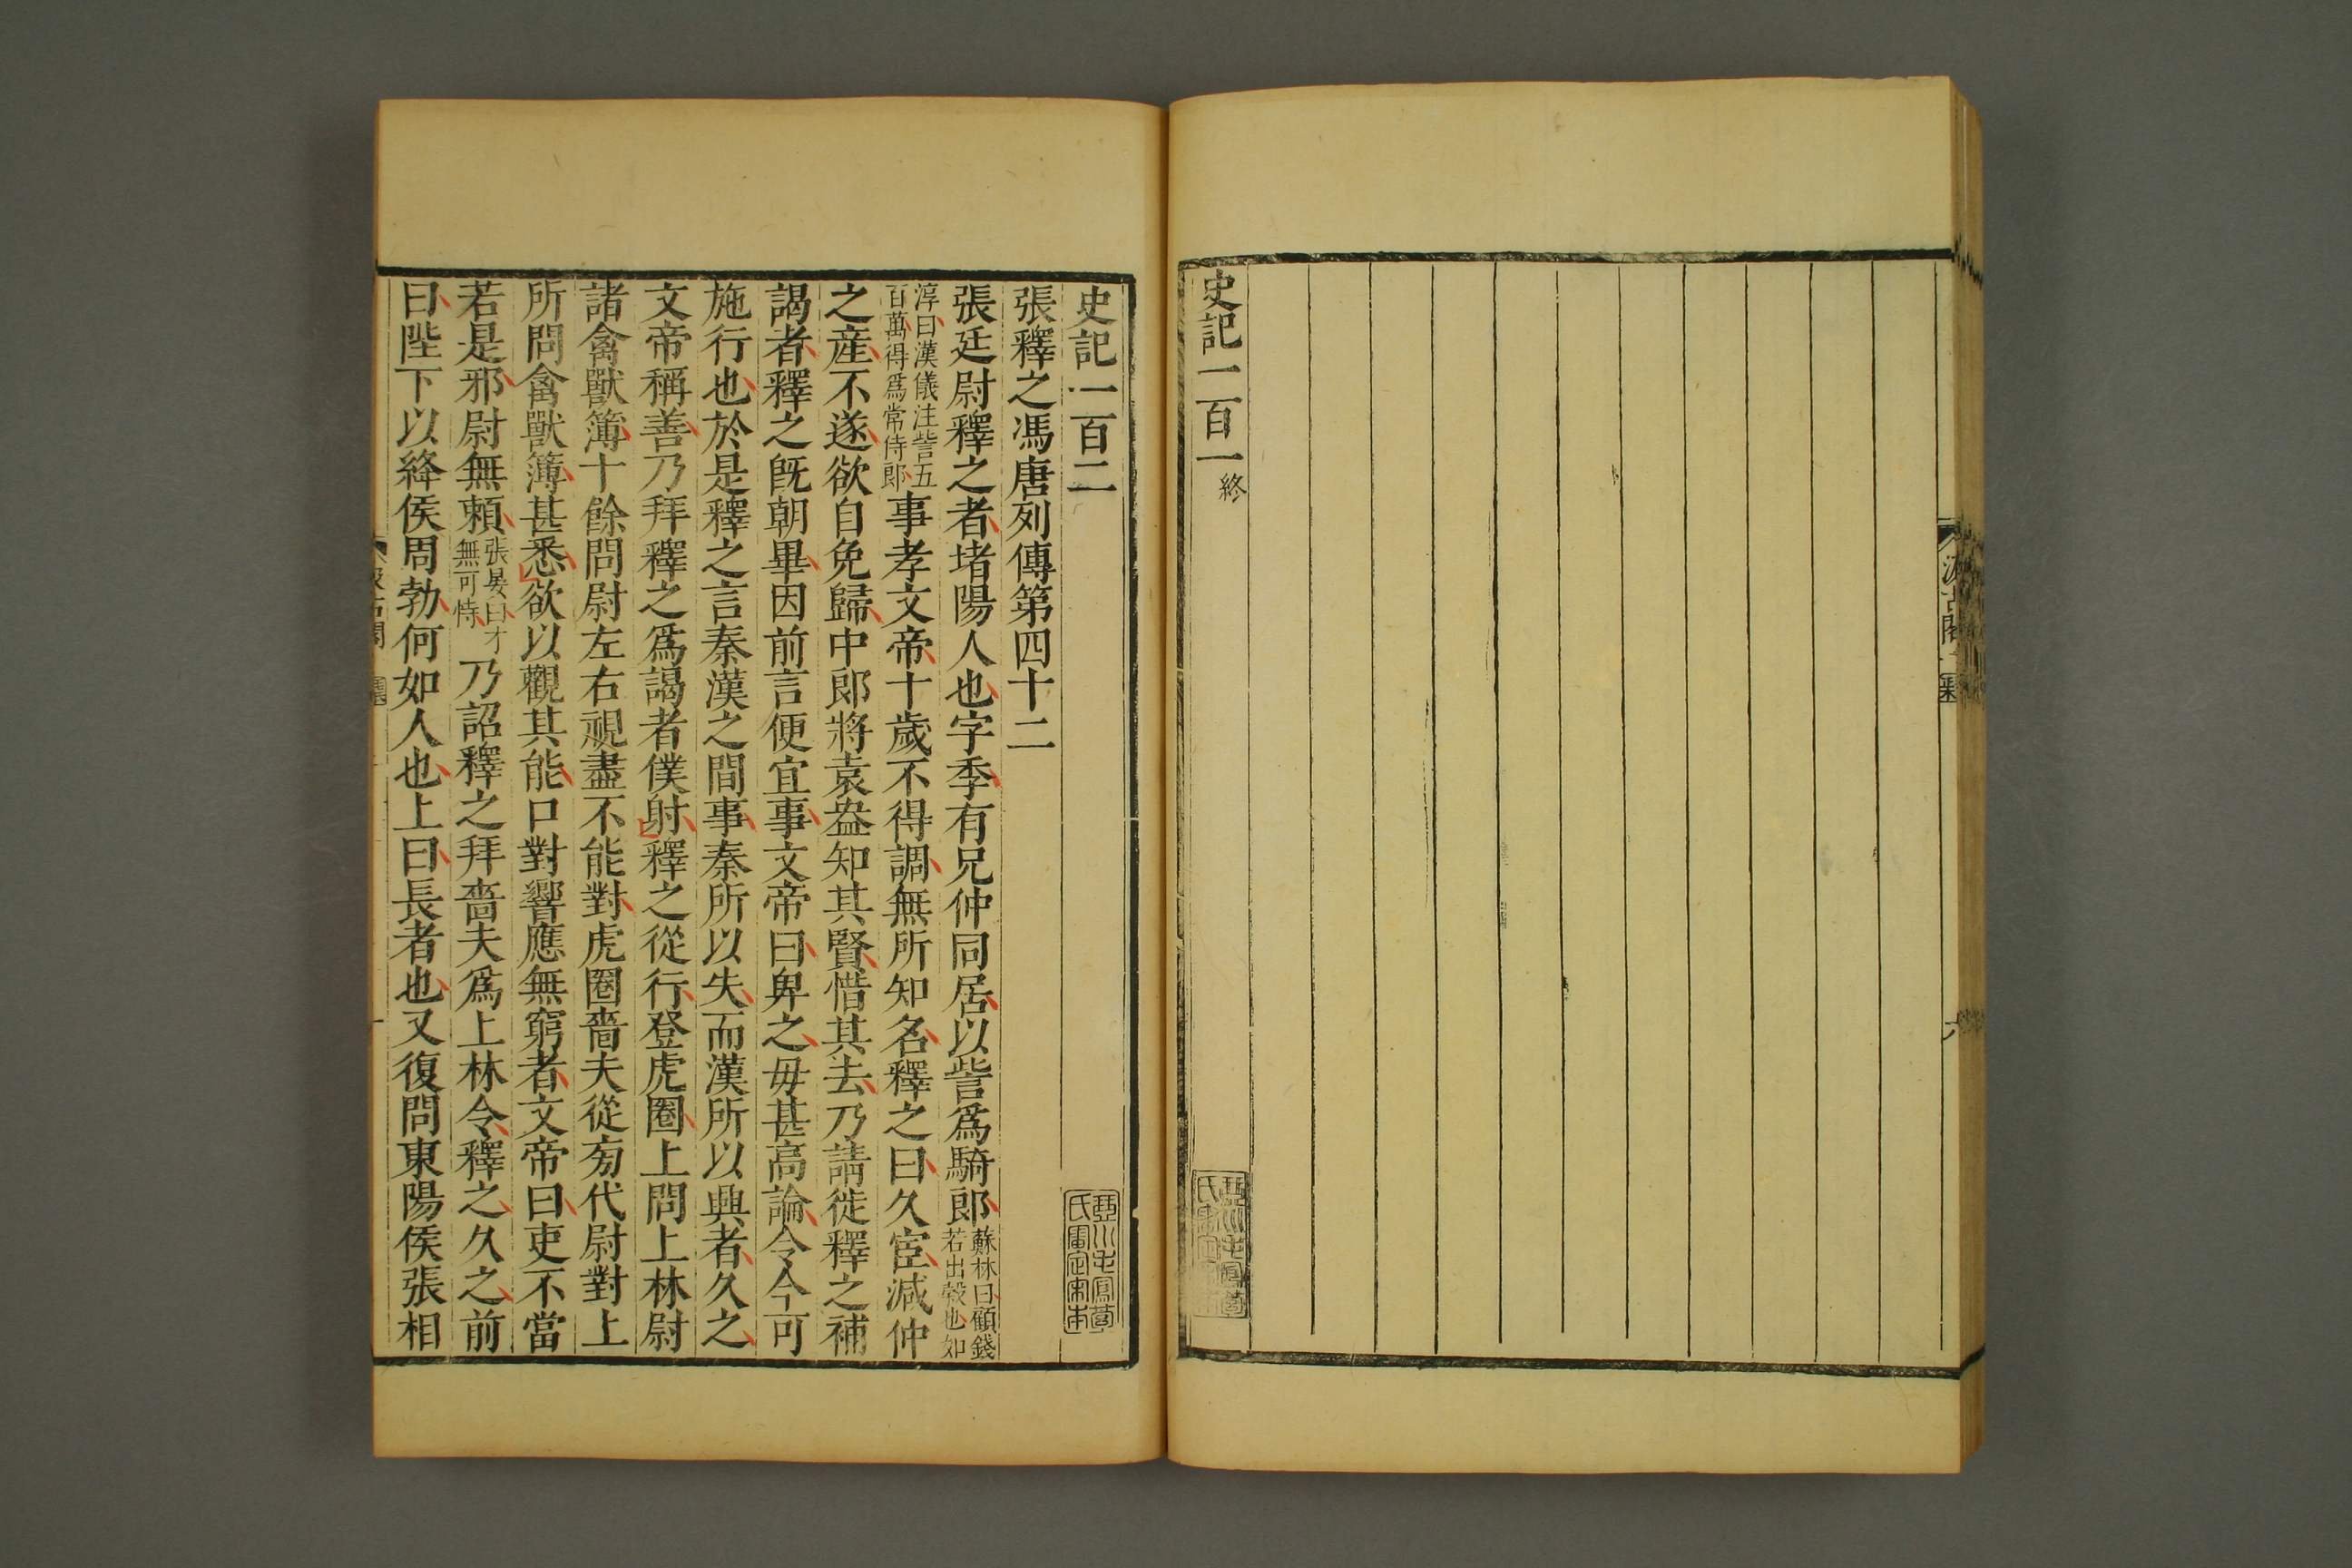 史記一百一終
史記一百二
張釋之馮唐列傳第四十二
張廷尉釋之者堵陽人也字季有兄仲同居以訾爲騎郎蘇林曰顧錢若出穀也如
淳曰漢儀注訾五百萬得爲常侍郎事孝文帝十歲不得調無所知名釋之曰久宦減仲
之産不遂欲自免歸中郎將袁盎知其賢惜其去乃請徙釋之補
謁者釋之旣朝畢因前言便宜事文帝曰卑之毋甚高論令今可
施行也於是釋之言秦漢之間事秦所以失而漢所以興者久之
文帝稱善乃拜釋之爲謁者僕射釋之從行登虎圈上問上林尉
諸禽獸簿十餘問尉左右視盡不能對虎圈嗇夫從旁代尉對上
所問禽獸簿甚悉欲以觀其能口對響應無窮者文帝曰吏不當
若是邪尉無賴張晏曰才無可恃乃詔釋之拜嗇夫爲上林令釋之久之前
曰陛下以絳侯周勃何如人也上曰長者也又復問東陽侯張相